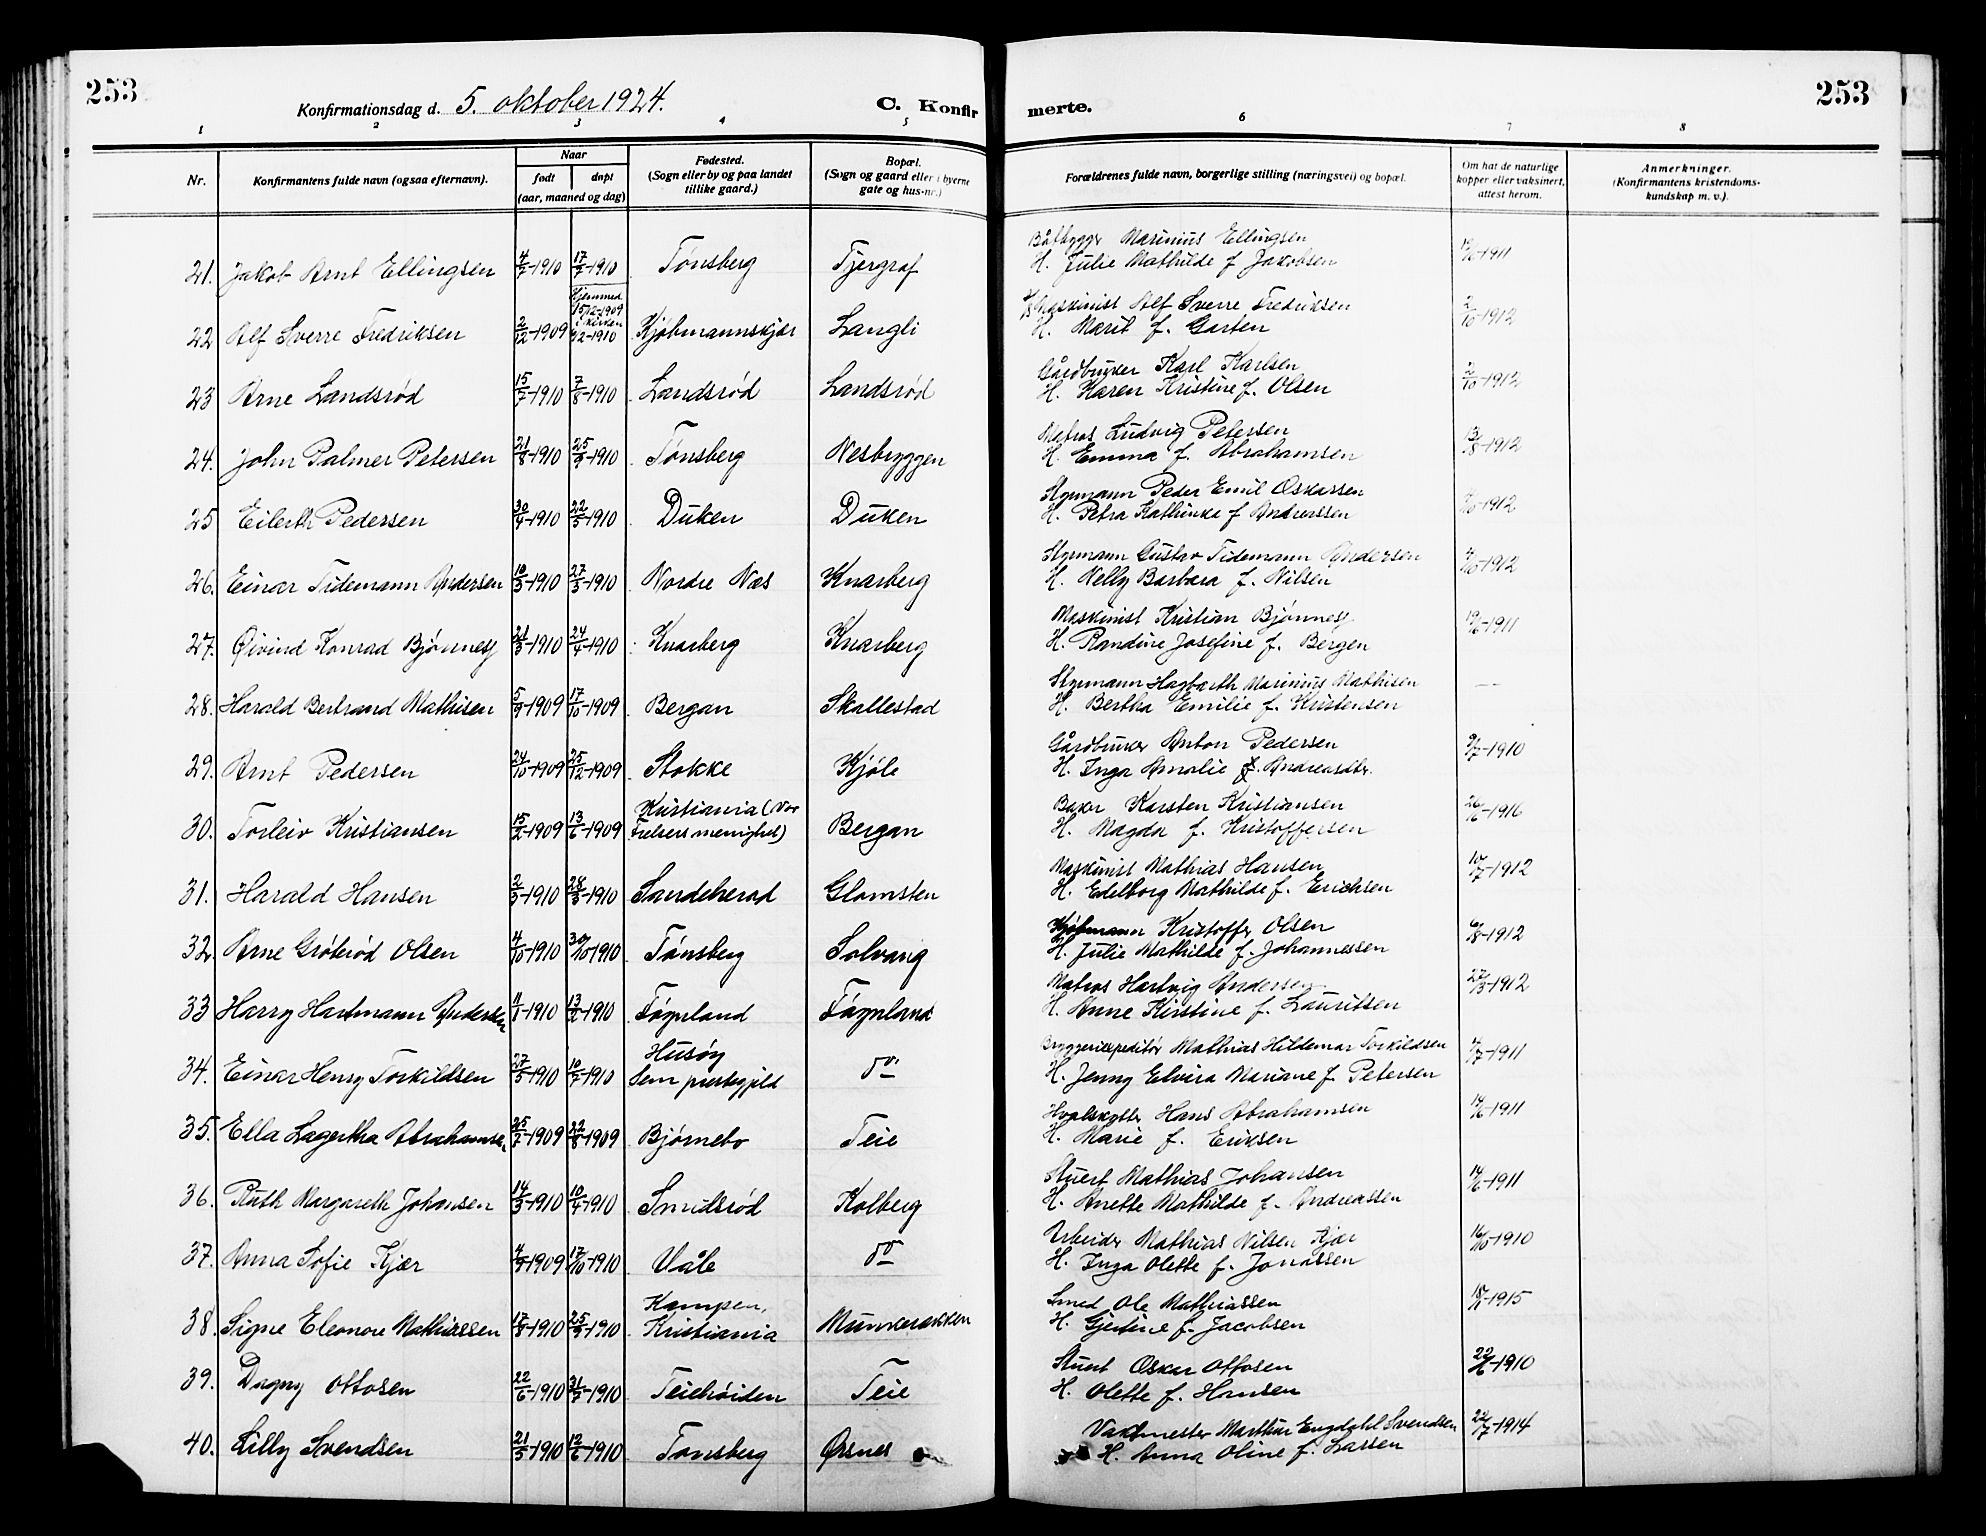 253
Konfirmationsdag d. 5. oktober 1924.
C. Konfirmerte.
253
1 2 3 4 5 6 7 8
Nr. Konfirmantens fulde navn (ogsaa efternavn). Naar født døpt (aar, maaned og dag) Fødested. (Sogn eller by og paa landet tillike gaard.) Bopæl. (Sogn og gaard eller i byerne gate og hus-nr.) Forældrenes fulde navn, borgerlige stilling (næringsvei) og bopæl. Om hat de naturlige kopper eller vaksinert, attest herom. Anmerkninger. (Konfirmantens kristendomskundskap m. v.).
21. Jakob Arnt Ellingsen 4/2-1910 17/7-1910 Tønsberg Tjergraf Båtbygger Marinius Ellingsen
H. Julie Mathilde f. Jakobsen 19/6-1911
22 Alf Sverre Fredriksen 2/12-1909 Hjemmed. 15/12-1909 i kirken 1910 Kjøbmannskjær Langli Maskinist Alf Sverre Fredriksen
H. Marit f. Garten 2/10-1912
23 Arne Landsrød 15/7-1910 7/8-1910 Landsrød Landsrød Gårdbruker Karl Karlsen
H. Karen Kristine f. Olsen 2/10-1912
24. John Palmer Petersen 21/8-1910 25/9-1910 Tønsberg Nesbryggen Matros Ludvig Petersen
H. Emma f. Abrahamsen 13/8-1912
25 Eilerth Pedersen 30/4-1910 22/5-1910 Duken Duken Styrmann Peder Emil Oskarssen
H. Petra Kathinka f. Andreassen 1912
26. Einar Tidemann Andersen 10/3-1910 27/3-1910 Nordre Næs Knarberg Styrmann Gustav Tidemann Andersen
H. Nelly Barbara f. Nilsen 4/10-1912
27. Øivind Konrad Bjønnes 21/3-1910 24/4-1910 Knarberg Knarberg Maskinist Kristian Bjønnes
H. Randine Josefine f. Bergen 19/6-1911
28. Harald Bertrand Mathisen 5/9-1909 17/10-1909 Bergan Skallestad Styrmann Hagbarth Marinius Mathisen
H. Bertha Emilie f. Kristensen —
29. Arnt Pedersen 24/10-1909 25/12-1909 Stokke Kjøle Gårdbruker Anton Pedersen
H. Inga Amalie f. Andreasdtr. 9/7-1910
30. Torleiv Kristiansen 15/2-1909 13/6-1909 Kristiania (Vor Frelsers menighet) Bergan Baker Karsten Kristiansen
H. Magda f. Kristoffersen 26/6-1916
31. Harald Hansen 2/3-1910 28/3-1910 Sandeherad Glomsten Maskinist Mathias Hansen
H. Edelborg Mathilde f. Erichsen 10/7-1912
32. Arne Gröterød Olsen 4/10-1910 30/10-1910 Tønsberg Solvang Kjøbmann Kristoffer Olsen
H. Julie Mathilde f. Johannessen 6/8-1912
33 Harry Hartmann Andersen 11/1-1910 13/2-1910 Føynland Føynland Matros Hartvig Andersen
H. Anne Kirstine f. Lauritsen 27/3-1912
34. Einar Henry Torkildsen 27/5-1910 10/7-1910 Husøy Sem prestegjeld do Bryggeriexpeditör Mathias Hildemar Torkildsen
H. Jenny Elvira Mariane f. Petersen 1911
35. Ella Lagertha Abrahamsen 25/7-1909 22/8-1909 Bjørnebo Teie Hvalskytter Hans Abrahamsen
H. Marie f. Eriksen 14/6-1911
36. Ruth Margareth Johansen 14/3-1910 10/4-1910 Smidsrød Kolberg Stuert Mathias Johansen
H. Anette Mathilde f. Andreassen 14/6-1911
37. Anna Sofie Kjær 4/9-1909 17/10-1910 Våle do Arbeider Mathias Nilsen Kjær
H. Inga Olette f. Jonassen 16/10-1910
38. Signe Eleonore Mathiassen 17/8-1910 25/9-1910 Kampen, Kristiania Munkerækken Smed Ole Mathiassen
H. Gjertine f. Jacobsen 1915
39. Dagny Ottosen 22/6-1910 31/7-1910 Teiehöiden Teie Stuert Oskar Ottosen
H. Olette f. Hansen 1910
40. Lilly Svendsen 21/5-1910 12/6-1910 Tønsberg Ørsnes Vaktmester Marthin Engdahl Svendsen
H. Anna Oline f. Larsen 1914